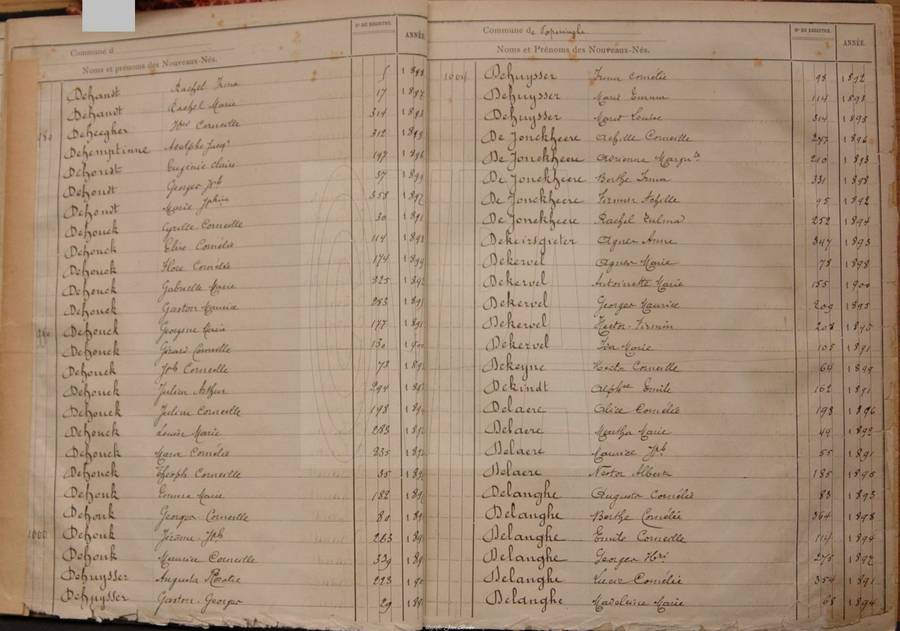 Commune d
Noms et prénoms des Nouveaux-Nés.
N° DU REGISTRE.
ANNÉE.
Dehandt Rachel Irma 5 1898
Dehandt Rachel Marie 17 1897
Deheegher Corneille 314 1893
Dehemptinne Adolphe Jacqs 312
Dehondt Eugénie Claire 197 1896
Dehondt Georges Jph 37 1899
Dehondt Marie 358 1897
Dehouck Cyrille Corneille 30 1891
Dehouck Elise Cornélie 114
Dehouck Flore Cornélie 174 1899
Dehouck Gabrielle Marie 325
Dehouck Gaston Maurice 283
Dehouck Georgine 177
Dehouck Gérard Corneille 130
Dehouck Jph Corneille 72
Dehouck Julien Arthur 294
Dehouck Julien Corneille 198
Dehouck Louise Marie 283
Dehouck Maria Cornélie 235
Dehouck Théoph Corneille 35
Dehouk Emma Marie 182
Dehouk Georges Corneille 80
1000 Dehouk Jérôme Jph 263
Dehouk Maurice Corneille 339
Dehuysser Augusta Rosalie 223
Dehuysser Gaston Georges 29
Commune de Poperinghe
Noms et Prénoms des Nouveaux-Nés.
N° DU REGISTRE.
ANNÉE.
1004 Dehuysser Irma Cornélie 98 1892
Dehuysser Marie Emma 114 1898
Dehuysser Marie Louise 314 1895
De Jonckheere Achille Corneille 297 1896
De Jonckheere Adrienne Margte 210 1893
De Jonckheere Berthe Irma 331 1898
De Jonckheere Firmin Achille 95 1892
De Jonckheere Rachel Zulma 252 1894
Dekeirsgieter Agnes Anne 347 1893
Dekervel Agnes Marie 78 1898
Dekervel Antoinette Marie 155 1900
Dekervel Georges Maurice 209 1895
Dekervel Hector Firmin 208 1890
Dekervel Ida Marie 105 1891
Dekeyne Hector Corneille 64 1899
Dekindt Alphse Emile 162 1891
Delaere Alice Cornélie 198 1896
Delaere Martha Marie 49 1892
Delaere Maurice Jph 55 1891
Delaere Nestor Albert 185 1890
Delanghe Augusta Cornélie 83 1893
Delanghe Berthe Cornélie 364 1898
Delanghe Emile Corneille 114 1894
Delanghe Georges Hri 275 1892
Delanghe Lucie Cornélie 354 1891
Delanghe Madeleine Marie 68 1894